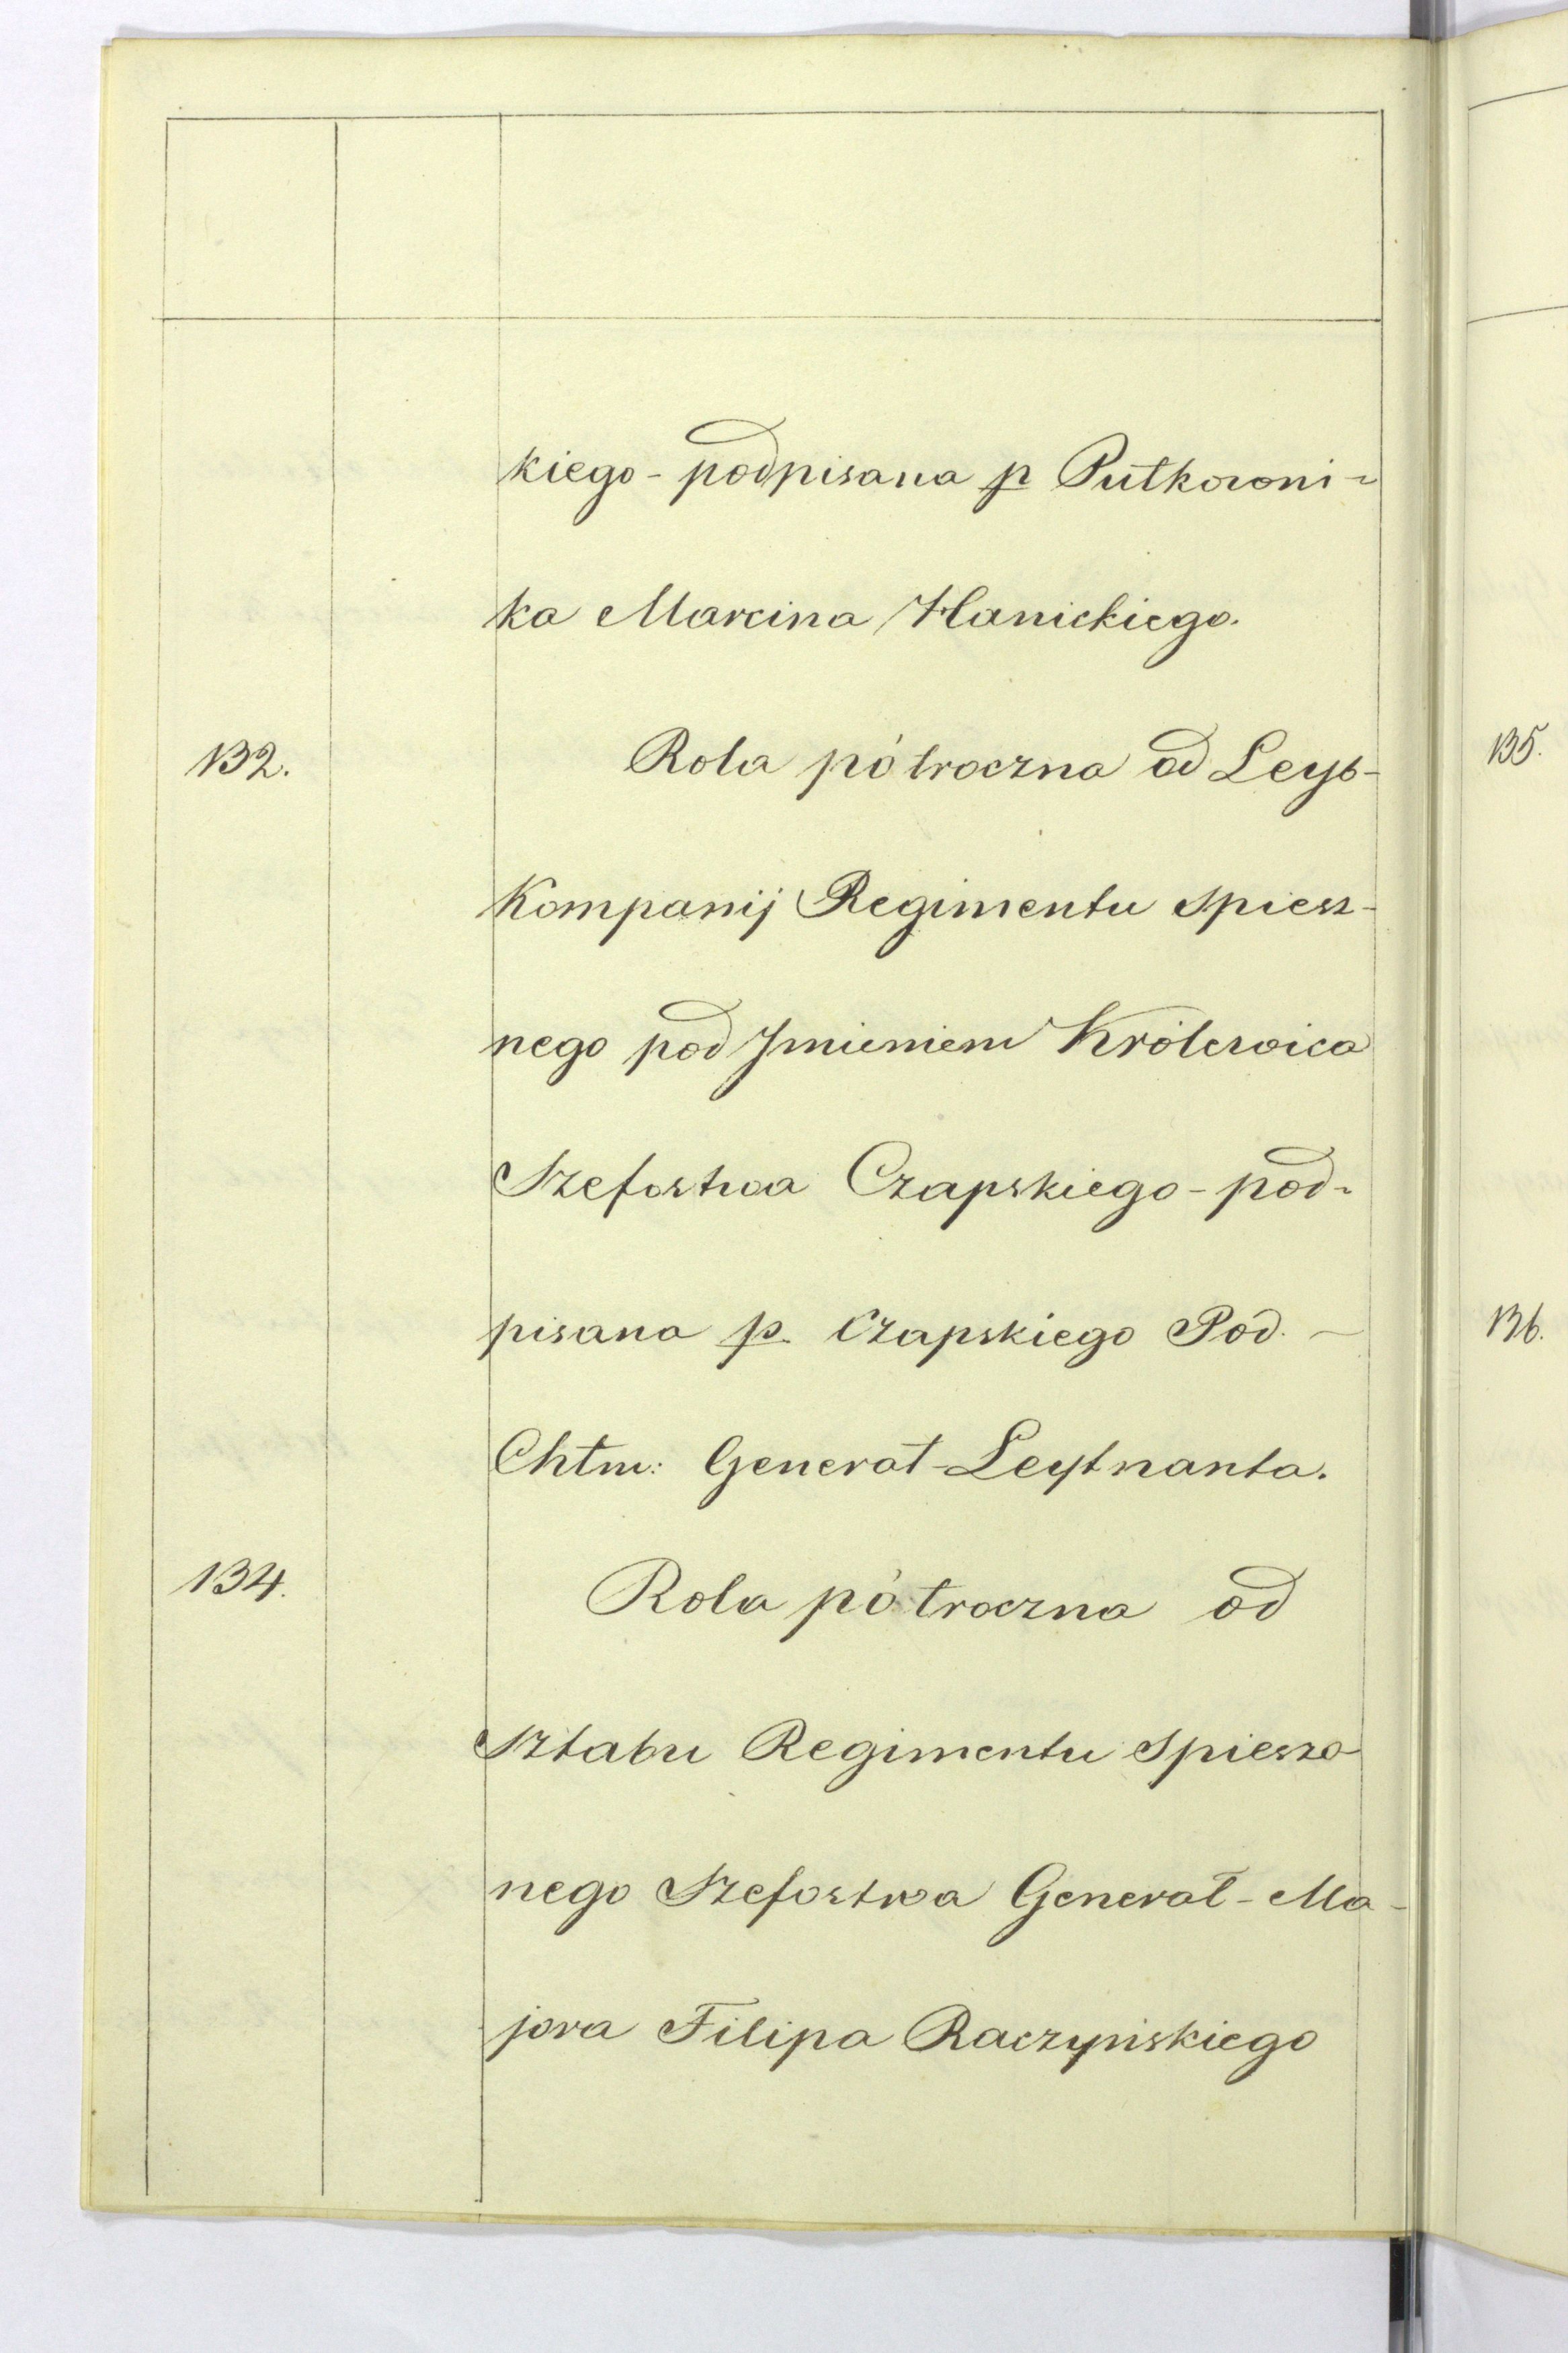 kiego - podpisana p Pułkowni-
ka Marcina Hanickiego.
132. Rola półroczna od Leyb-
Kompanij Regimentu spiesz-
nego pod Jmieniem Królewica
Szefostwa Czapskiego - pod-
pisana p. Czapskiego Pod. -
Chłm: Generał-Leytnanta.
134. Rola półroczna od
Sztabu Regimentu spieszo-
nego Szefostwa Generał-Ma-
jora Filipa Raczyńskiego
135.
136.